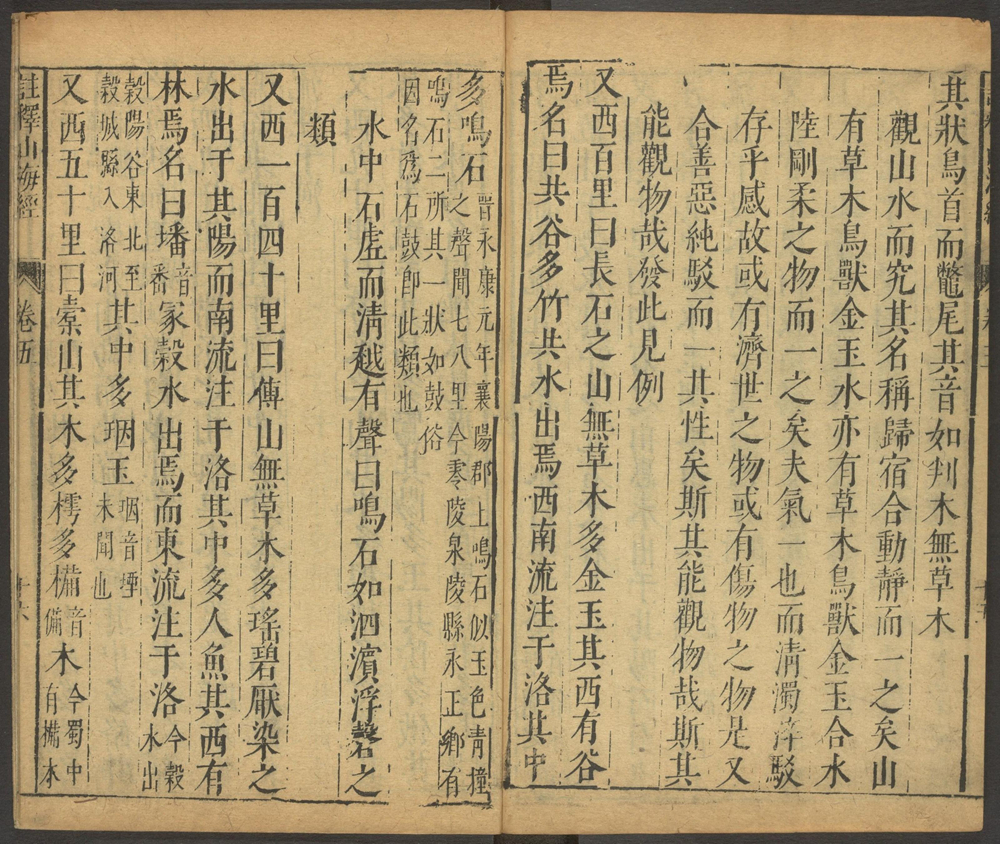 其狀鳥首而鼈尾其音如判木無草木
觀山水而究其名稱歸宿合動靜而一之矣山
有草木鳥獸金玉水亦有草木鳥獸金玉合水
陸剛柔之物而一之矣夫氣一也而清濁淬駁
存乎感故或有濟世之物或有傷物之物是又
合善惡純駁而一共性矣斯其能觀物哉斯其
能觀物哉發此見例
又西百里曰長石之山無草木多金玉其西有谷
焉名曰共谷多竹共水出焉西南流注于洛其中
多鳴石晋永康元年襄陽郡上鳴石似玉色青撞
之聲聞七八里今零陵泉陵縣永正鄉有
鳴石二所其一狀如鼓俗
因名爲石鼓卽此類也
水中石虛而清越有聲曰鳴石如泗濱浮磬之
類
又西一百四十里曰傅山無草木多瑤碧厭染之
水出于其陽而南流注于洛其中多人魚其西有
林焉名曰墦音番冢穀水出焉而東流注于洛今穀水出
穀陽谷東北至穀城縣入洛河其中多珚玉珚音堙未聞也
又西五十里曰橐山其木多樗多㯕音備木今蜀中有㯕木
註釋山海經
卷五
十六